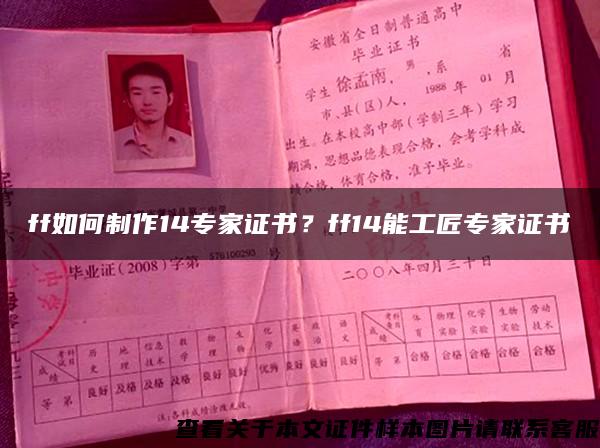 安徽省全日制普通高中
毕业证书
学生 徐孟南，男，系 省
市、县(区)人，1988 年 01 月
出生。在本校高中部（学制三年）学习
期满，思想品德表现合格，会考学科成
绩合格，体育合格，准予毕业。
ff如何制作14专家证书？ff14能工匠专家证书
毕业证（2008）字第 576100293 号
二〇〇八年四月三十日
考试科目 历史 地理 信息技术 数学 物理 生物 化学 英语 政治 语文
成绩
等第 良好 及格 及格 及格 良好 良好 优秀 良好 良好 良好
注：各科成绩涂改无效。
考查科目 体育 物理实验 化学实验 生物实验 劳动技术
成绩
等第 合格 合格 合格 合格 合格
查看关于本文证件样本图片请联系客服